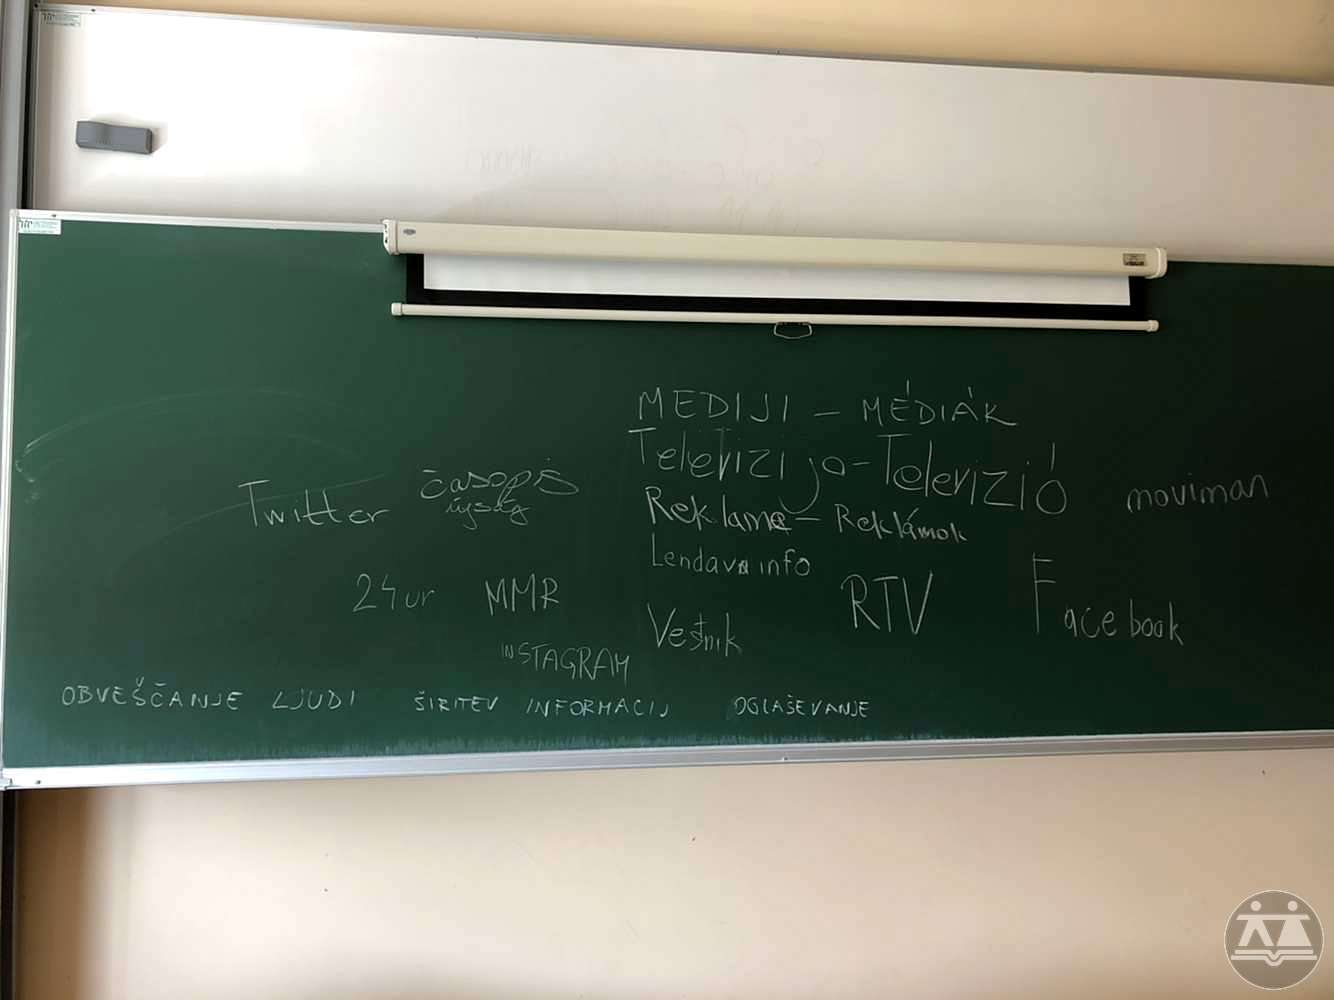 MEDIJI – MÉDIÁK
Televizija – Televizió
Twitter
časopis
újság
Reklame – Reklámok
moviman
Lendava info
24ur
MMR
Vestnik
RTV
Facebook
INSTAGRAM
OBVEŠČANJE LJUDI ŠIRITEV INFORMACIJ OGLAŠEVANJE